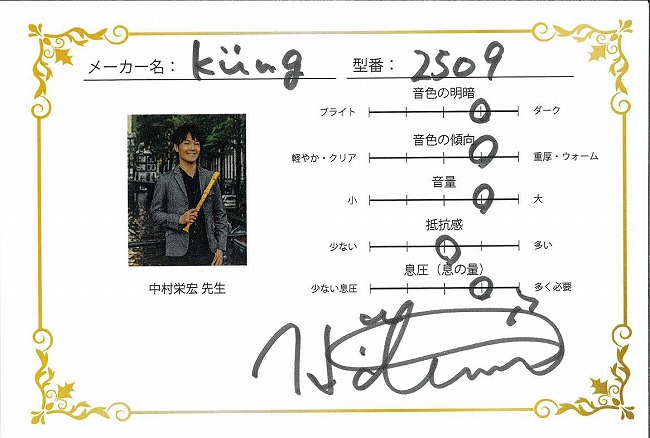 メーカー名： Küng 型番： 2509
音色の明暗
ブライト ダーク
音色の傾向
軽やか・クリア 重厚・ウォーム
音量
小 大
抵抗感
少ない 多い
息圧（息の量）
少ない息圧 多く必要
中村栄宏 先生